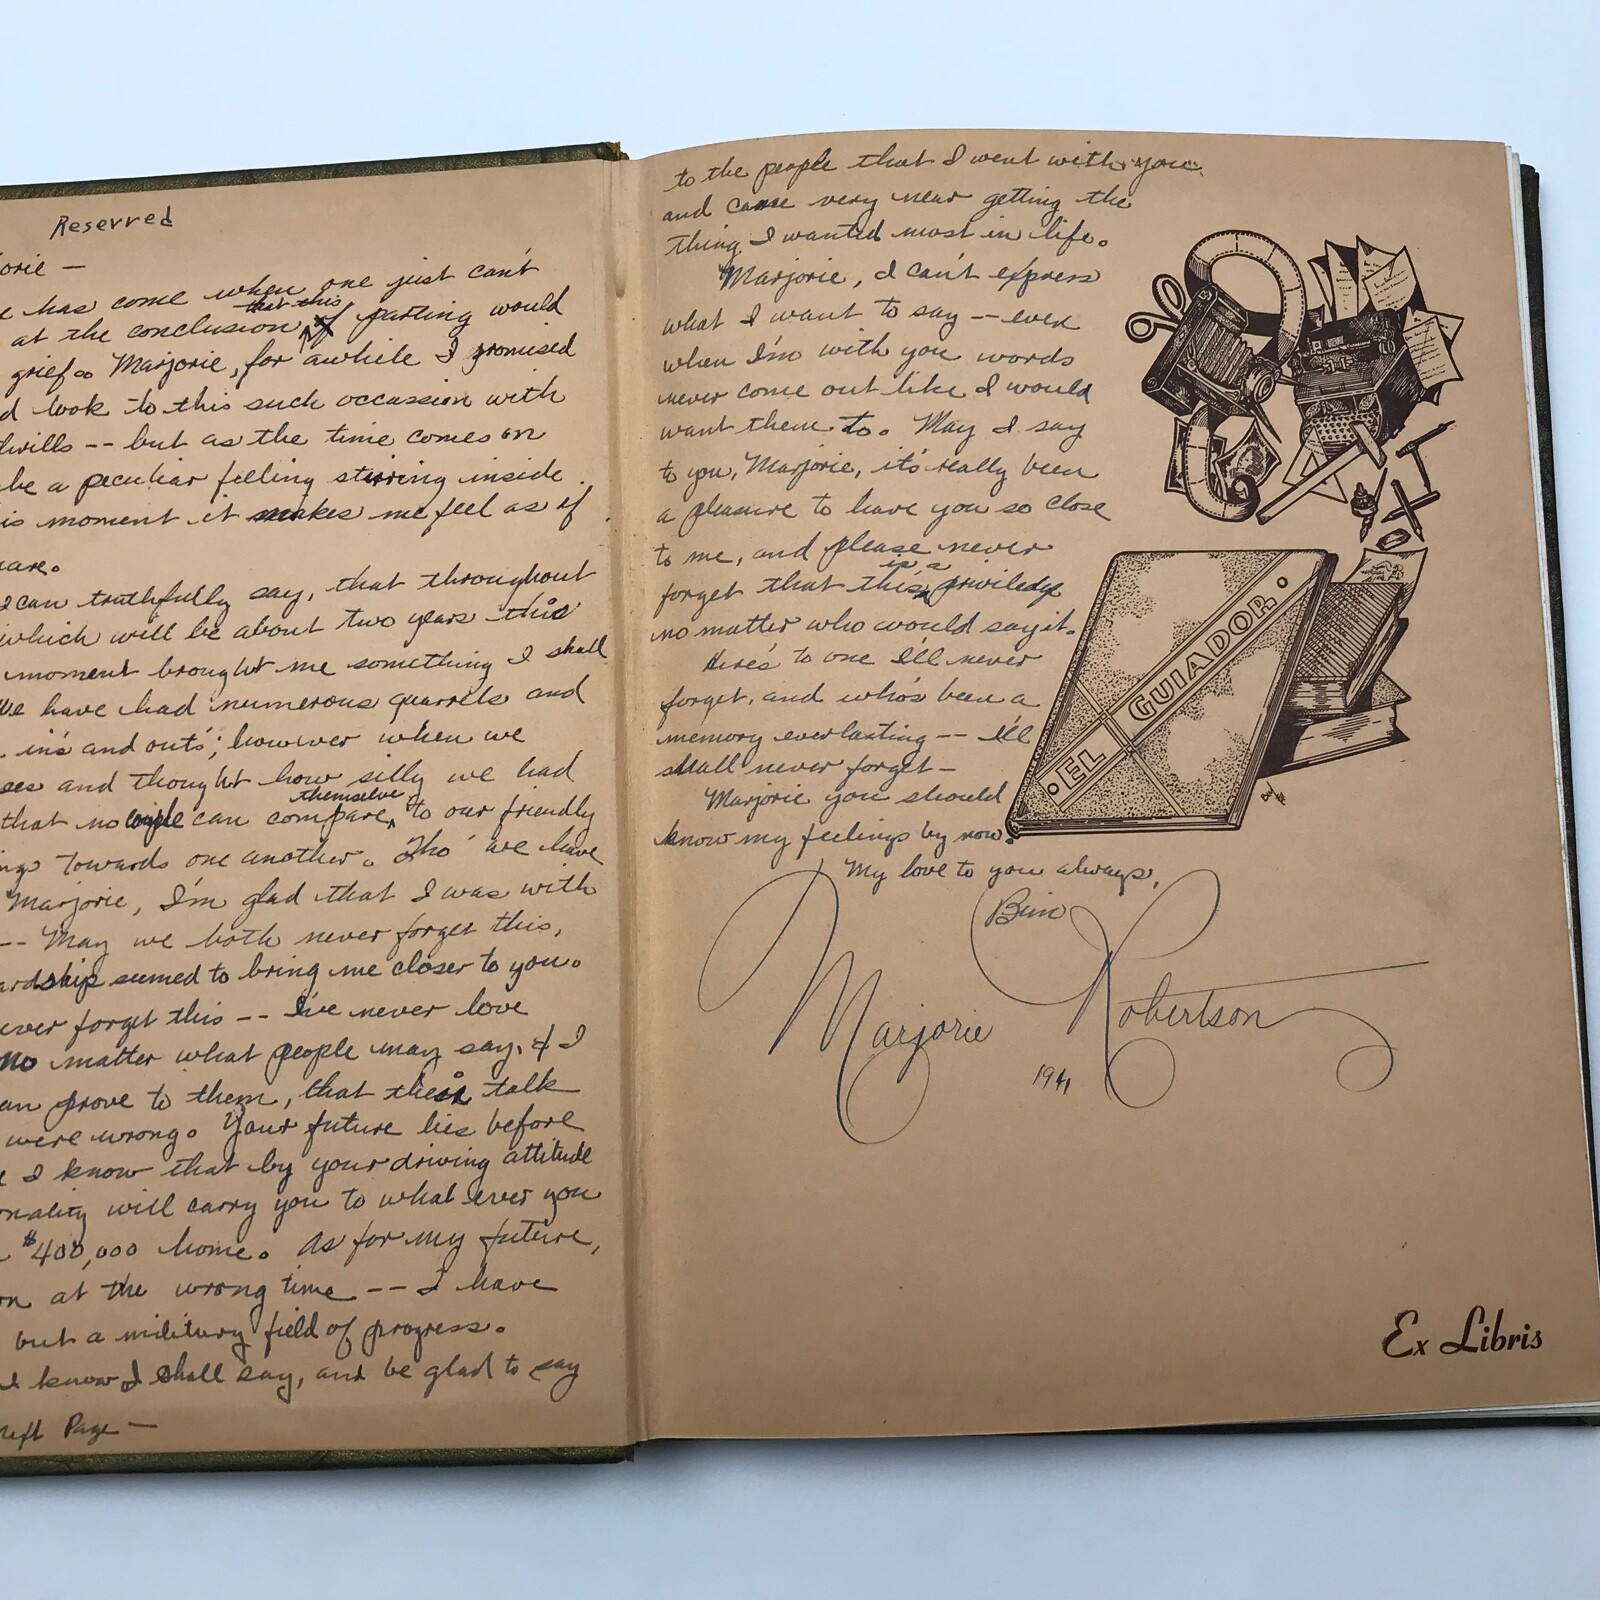 Reserved
orie —
has come when one just can't
at the conclusion that this parting would
grief. Marjorie, for awhile I promised
d look to this such occassion with
dwills -- but as the time comes on
be a peculiar feeling stirring inside
is moment it makes me feel as if
are.
I can truthfully say, that throughout
which will be about two years this
moment brought me something I shall
We have had numerous quarrels and
in's and outs'; however when we
ses and thought how silly we had
that no couple can compare themselve to our friendly
ng towards one another. Tho' we have
Marjorie, I'm glad that I was with
-- May we both never forget this,
ardship seemed to bring me closer to you.
ever forget this -- I've never love
No matter what people may say, & I
an prove to them, that their talk
were wrong. Your future lies before
I know that by your driving attitude
onality will carry you to what ever you
$400,000 home. As for my future,
rn at the wrong time -- I have
but a military field of progress.
I know I shall say, and be glad to say
Page —
to the people that I went with you
and came very near getting the
thing I wanted most in life.
Marjorie, I can't express
what I want to say -- even
when I'm with you words
never come out like I would
want them to. May I say
to you, Marjorie, it's really been
a pleasure to have you so close
to me, and please never
forget that this is a priviledge
no matter who would say it.
Here's to one I'll never
forget, and who's been a
memory everlasting -- I'll
shall never forget —
Marjorie you should
know my feelings by now.
My love to you always,
Bim
Marjorie Robertson
1941
EL GUIADOR
Ex Libris